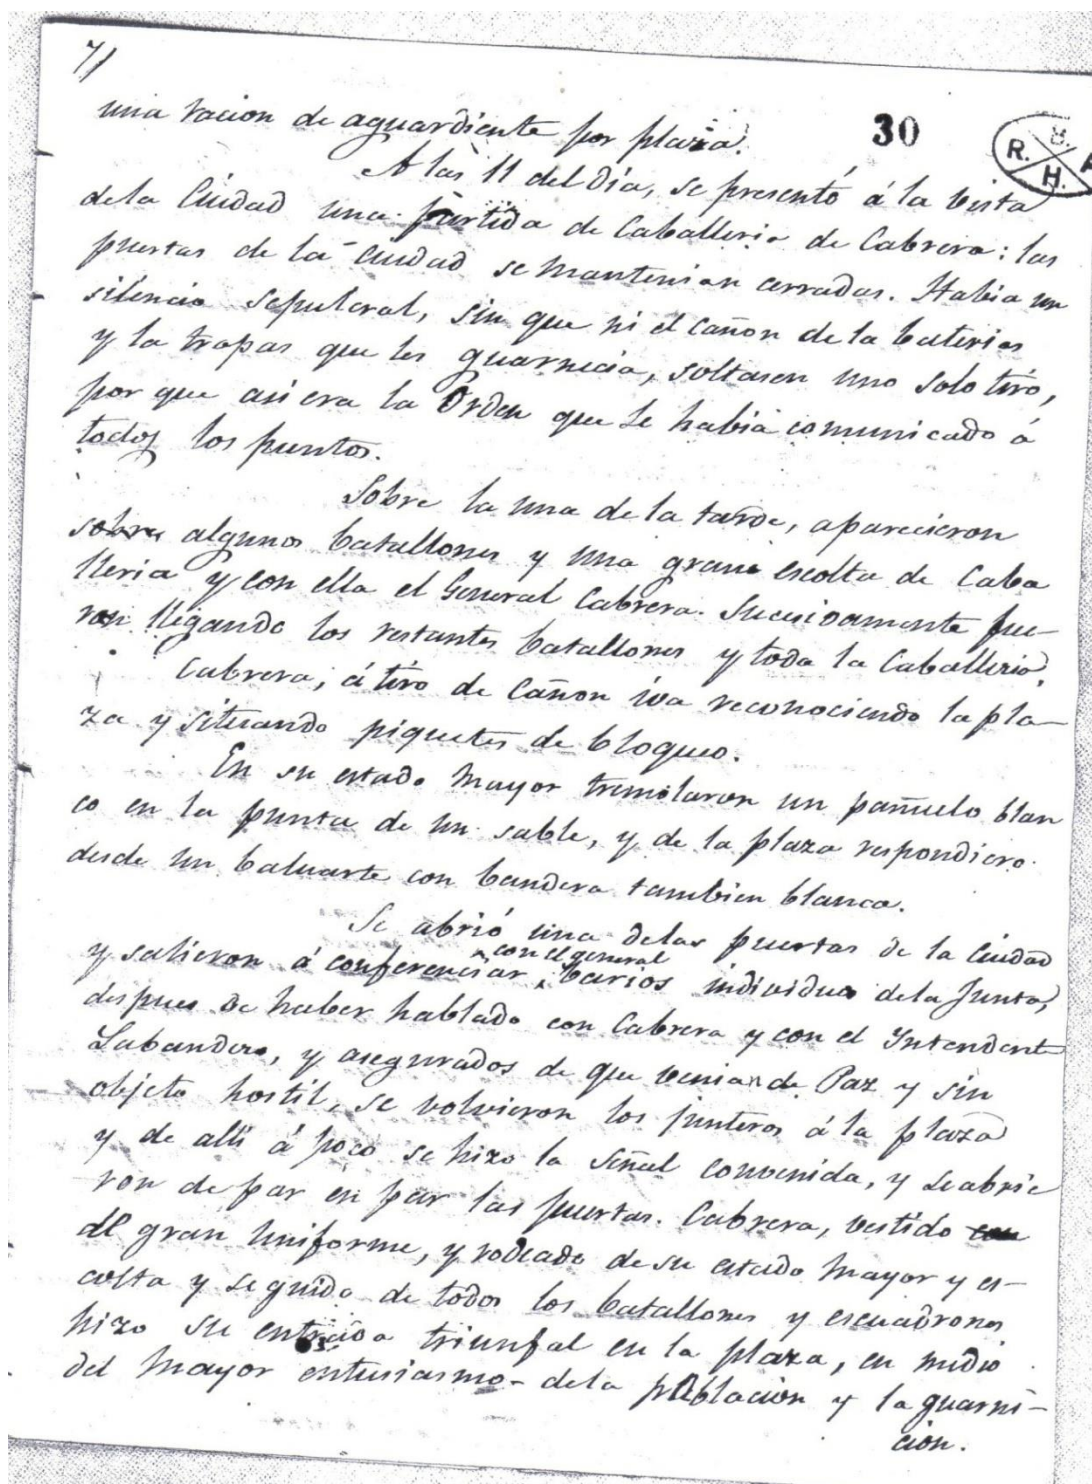 71
30
R. B. H.
una racion de aguardiente por plaza.
A las 11 del dia, se presentó á la vista
dela Ciudad una partida de Caballeria de Cabrera: las
puertas de la Ciudad se mantenian cerradas. Habia un
silencio sepulcral, sin que ni el cañon de la baterias
y la tropas que les guarnecia, soltasen uno solo tiro,
por que asi era la Orden que se habia comunicado á
todos los puntos.
Sobre la una de la tarde, aparecieron
sobre algunos batallones y una grane escolta de Caba
lleria y con ella el General Cabrera. Sucesivamente fue-
ron llegando los restantes batallones y toda la Caballeria.
Cabrera, á tiro de Cañon iva reconociendo la pla-
za y situando piquetes de bloqueo.
En su estado Mayor tremolaron un pañuelo blan
co en la punta de un sable, y de la plaza respondiero
desde un baluarte con bandera tambien blanca.
Se abrió una delas puertas de la Ciudad
con el general
y salieron á conferenciar, barios individuos dela Junta,
despues de haber hablado con Cabrera y con el Intendente
Labandero, y asegurados de que venian de Paz y sin
objeto hostil, se volvieron los junteros á la plaza
y de alli á poco se hizo la señal convenida, y se abrie
ron de par en par las puertas. Cabrera, vestido con
de gran uniforme, y rodeado de su estado Mayor y es-
colta y seguido de todos los batallones y escuadrones
hizo su entrada triunfal en la plaza, en medio
del Mayor entusiasmo- dela poblacion y la guarni-
cion.